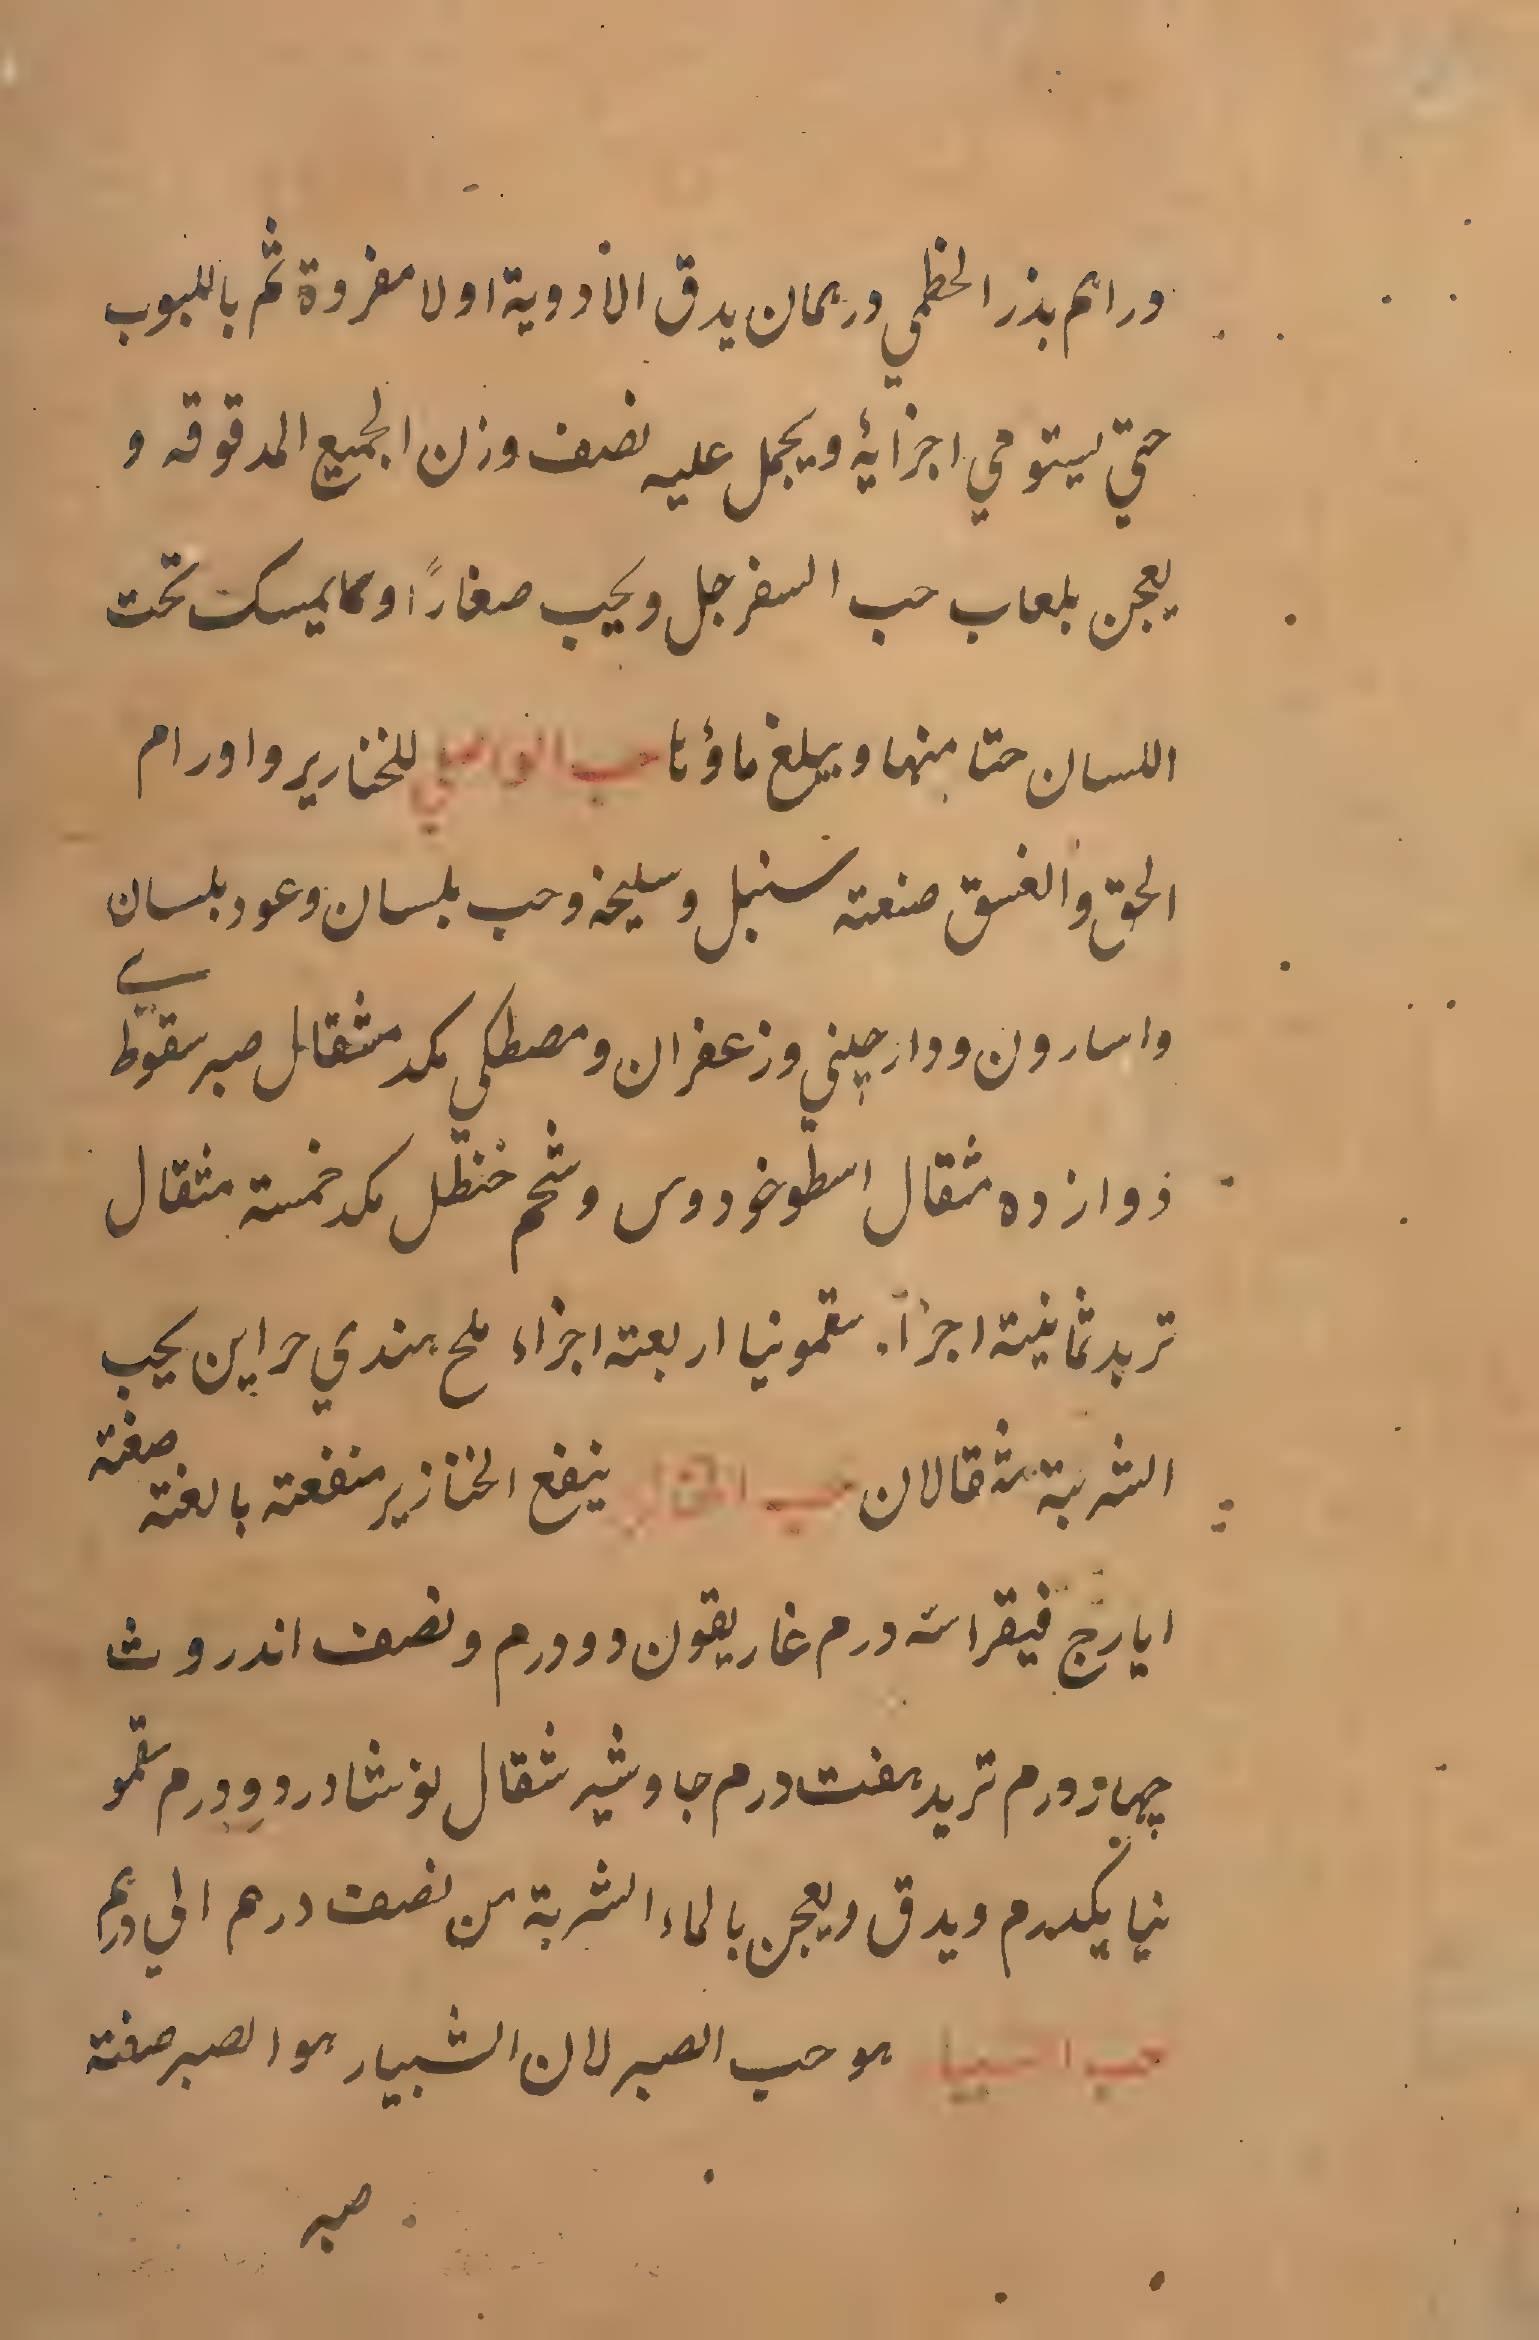 دراهم بذر الخطمي درهمان يدق الأدوية اولا مفروة ثم باللبوب
حتي ليتومي اجزايۀ ويجمل عليه نصف وزن الجميع المدقوقه و
يعجن بلعاب حب السفرجل ويحبب صغارًا وكما يمسك تحت
اللسان حتا منها ويبلغ ماؤنا حب للخنارير واورام
الحق والغسق صنعته سنبل وسليخة وحب بلسان وعود بلسان
واسارون ودارچيني وزعفران ومصطكي مكد مثقال صبر سقوطري
ذوازده مثقال اسطوخودوس وشحم خنظل مكد خمسة مثقال
تربد ثمانيته اجزأ. سقمونيا اربعته اجزاء ملح هندي جراين يحبب
الشربة مثقالان حب ينفع الخنازير منفعته بالغته صغته
ايارج فيقرا سه درم غاريقون دودرم ونصف اندروث
چهاردرم تربد هفت درم جاوشير مثقال نوشادر دودرم سقمو
نيا يكدرم ويدق ويعجن بالماء الشربة من نصف درهم الي درهم
حب هو حب الصبر لان الشبيار هوا لصبر صغته
صبر